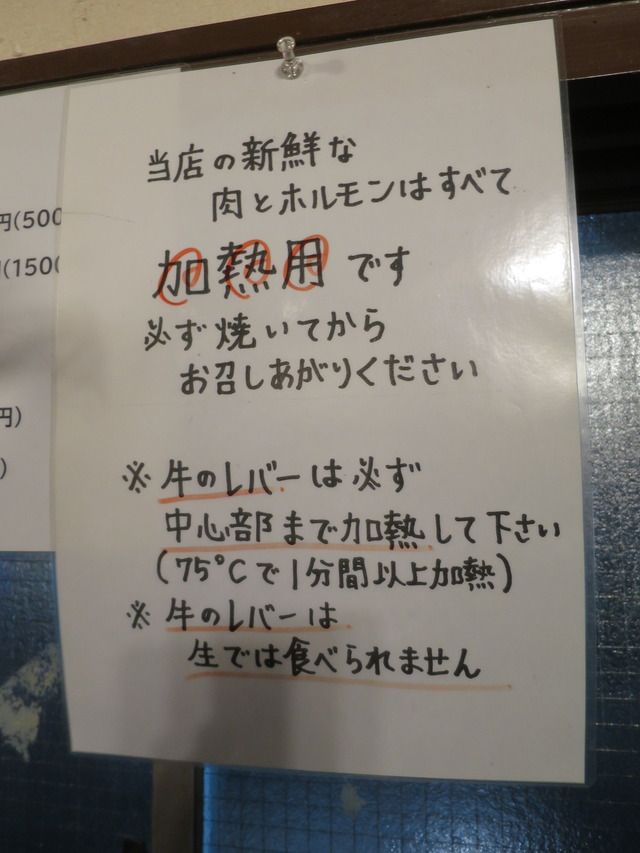 当店の新鮮な
肉とホルモンはすべて
加熱用です
必ず焼いてから
お召しあがりください
※牛のレバーは必ず
中心部まで加熱して下さい
(75°Cで1分間以上加熱)
※牛のレバーは
生では食べられません
円(500
(1500
円)
)